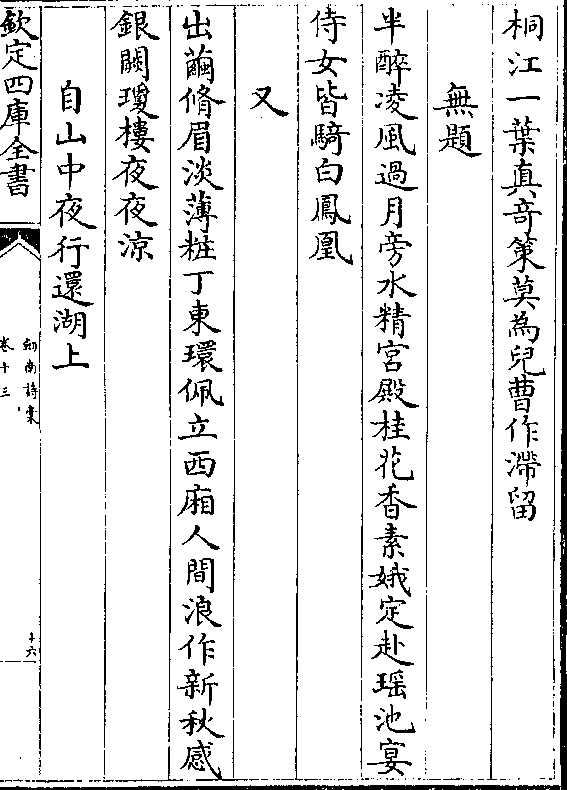 桐江一葉真竒策莫為兒曹作滯留
無題
半醉凌風過月旁水精宫殿桂花香素娥定赴瑶池宴
侍女皆騎白鳳凰
又
出繭脩眉淡薄粧丁東環佩立西廂人間浪作新秋感
銀闕瓊樓夜夜涼
自山中夜行還湖上
欽定四庫全書
劒南詩稾
卷十三
十六